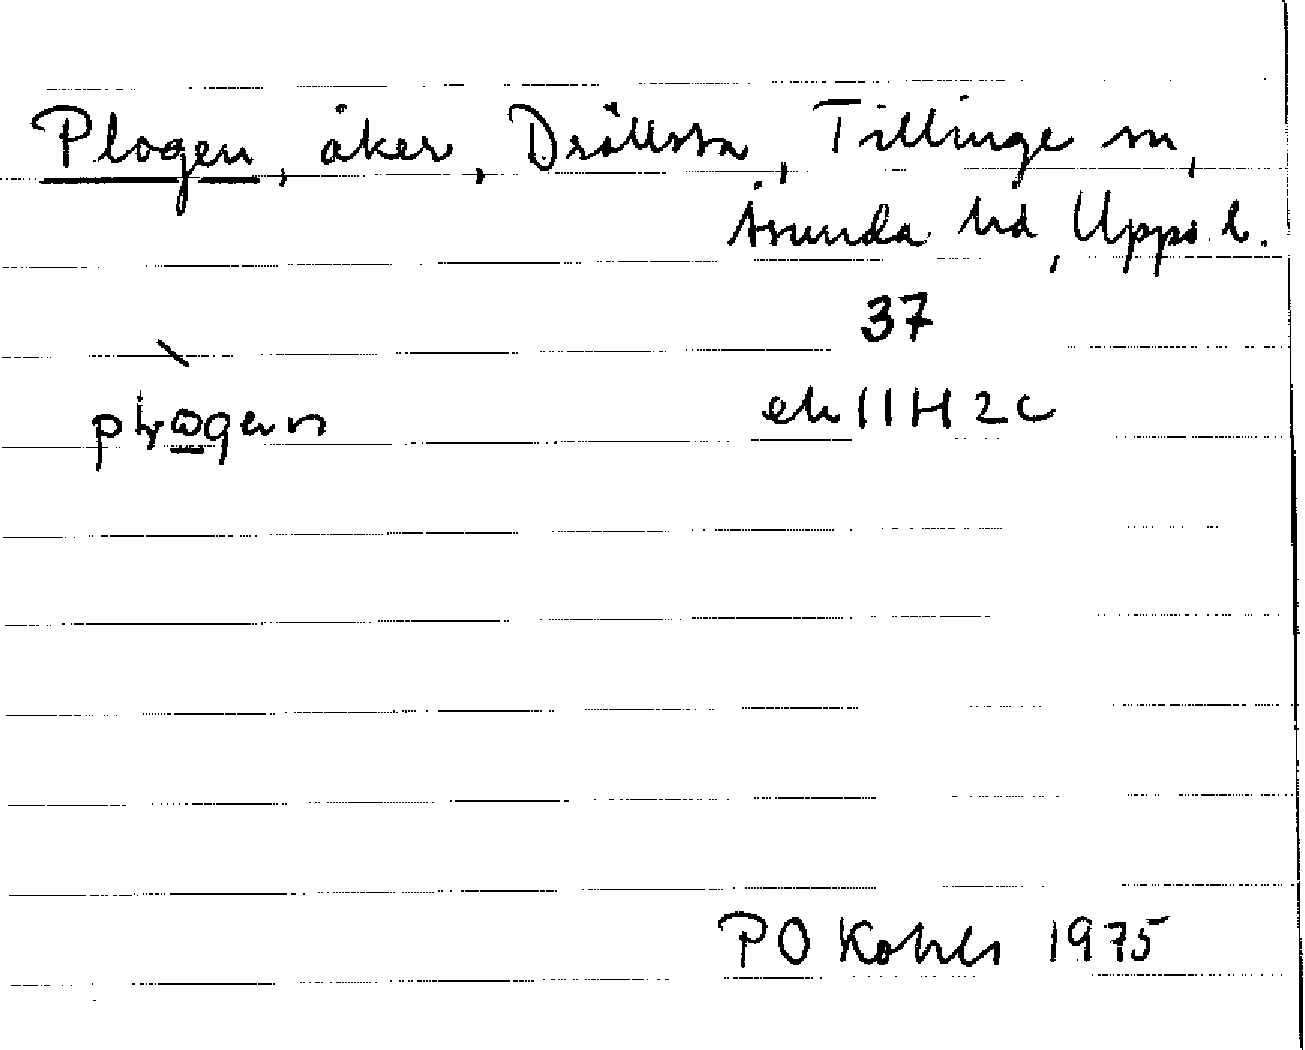 Plogen, åker, Drällsta, Tillinge sn,
Åsunda hd, Upps. l.
37
ek 11H2c
PO Kohls 1975